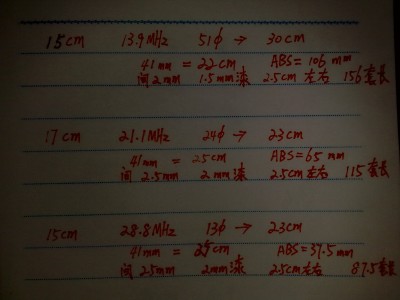 15cm 13.9MHz 51φ → 30cm
41mm = 22cm ABS=106mm
间2mm 1.5mm漆 2.5cm左右 156套长
17cm 21.1MHz 24φ → 23cm
41mm = 25cm ABS=65mm
间2.5mm 2mm漆 2.5cm左右 115套长
15cm 28.8MHz 13φ → 23cm
41mm = cm ABS=37.5mm
间 2mm漆 左右 87.5套长